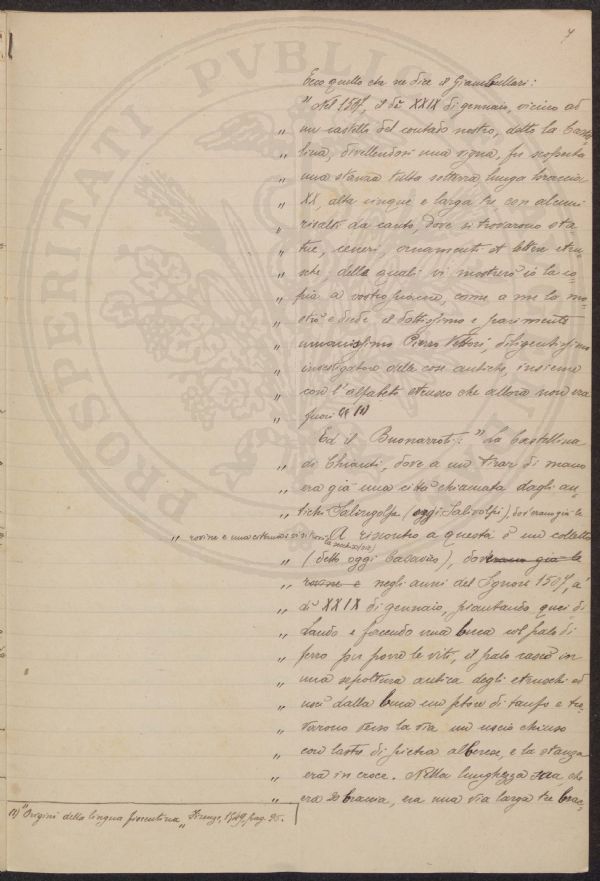 7
Ecco quello che ne dice il Giambullari:
" Nel 1507, il dì XXIX di gennaio, vicino ad
" un castello del contado nostro, detto la Castel
" lina, divellendosi una vigna, fu scoperta
" una stanza tutta sotterra, lunga braccia
" XX, alta cinque e larga tre con alcuni
" risalti da canto, dove si trovarono sta
" tue, ceneri, ornamenti et lettere etru-
" sche; delle quali vi mostrerò io la co-
" pia a vostro piacere, come a me la mo-
" strò e diede il dottissimo e parimente
" umanissimo Piero Vettori, diligentissimo
" investigatore delle cose antiche, insieme
" con l'alfabeto etrusco che allora non era
" fuori (1)
Ed il Buonarroti: " La Castellina
" di Chianti, dove a un trar di mano
" era già una città chiamata dagli an-
" tichi Salingolpe (oggi Salivolpi), dov'eran già le
" rovine e una citerna A riscontro a questa è un colletto
" (detto oggi Calavico), doverano già le
" rovine e negli anni del Signore 1507, a'
" dì XXIX di gennaio, piantando quei di
" Lando e facendo una buca col palo di
" ferro per porre le viti, il palo cascò in
" una sepoltura antica degli etruschi ed
" uscì dalla buca un pitore di tanfo e tro
" varono verso la via un uscio chiuso
" con lastre di pietra alberese, e la stanza
" era in croce. Nella lunghezza sua che
" era 20 braccia, era una via larga tre brac-
(1) "Origini della lingua fiorentina" Firenze, 1549, pag. 95.